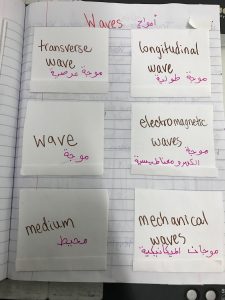 Waves امواج
transverse
wave
موجة عرضية
longitudinal
wave
موجة طولية
wave
موجة
electromagnetic
waves
موجة
الكهرومغناطيسية
medium
محيط
mechanical
waves
موجات الميكانيكية